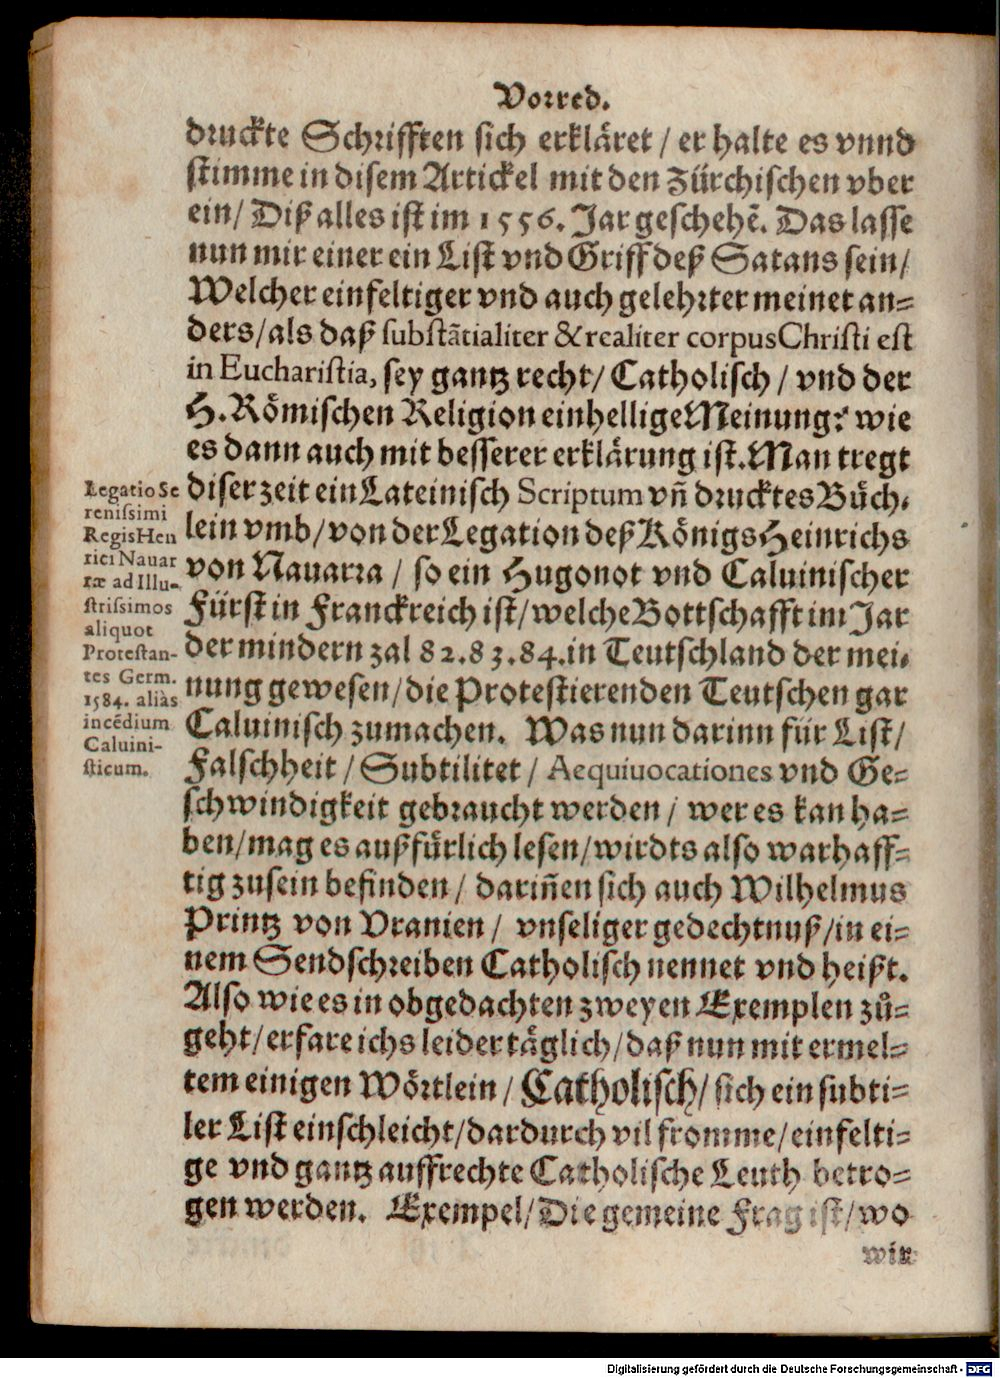 Vorred.
druckte Schrifften sich erkläret / er halte es vnnd
stimme in disem Artickel mit den Zürchischen vber
ein / Diß alles ist im 1556. Jar geschehẽ. Das lasse
nun mir einer ein List vnd Griff deß Satans sein /
Welcher einfeltiger vnd auch gelehrter meinet an-
ders / als daß substãtialiter & realiter corpus Christi est
in Eucharistia, sey gantz recht / Catholisch / vnd der
H. Römischen Religion einhellige Meinung? wie
es dann auch mit besserer erklärung ist. Man tregt
diser zeit ein Lateinisch Scriptum vñ drucktes Büch-
lein vmb / von der Legation deß Königs Heinrichs
von Nauarra / so ein Hugonot vnd Caluinischer
Fürst in Franckreich ist / welche Bottschafft im Jar
der mindern zal 82. 83. 84. in Teutschland der mei-
nung gewesen / die Protestierenden Teutschen gar
Caluinisch zumachen. Was nun darinn für List /
Falschheit / Subtilitet / Aequiuocationes vnd Ge-
schwindigkeit gebraucht werden / wer es kan ha-
ben / mag es außfürlich lesen / wirdts also warhaff-
tig zusein befinden / dariñen sich auch Wilhelmus
Printz von Vranien / vnseliger gedechtnuß / in ei-
nem Sendschreiben Catholisch nennet vnd heißt.
Also wie es in obgedachten zweyen Exemplen zů-
geht / erfare ichs leider täglich / daß nun mit ermel-
tem einigen Wörtlein / Catholisch / sich ein subti-
ler List einschleicht / dardurch vil fromme / einfelti-
ge vnd gantz auffrechte Catholische Leuth betro-
gen werden. Exempel / Die gemeine Frag ist / wo
wir
Legatio Se
renissimi
Regis Hen
rici Nauar
ræ ad Illu-
strissimos
aliquot
Protestan-
tes Germ.
1584. aliàs
incẽdium
Caluini-
sticum.
Digitalisierung gefördert durch die Deutsche Forschungsgemeinschaft - DFG